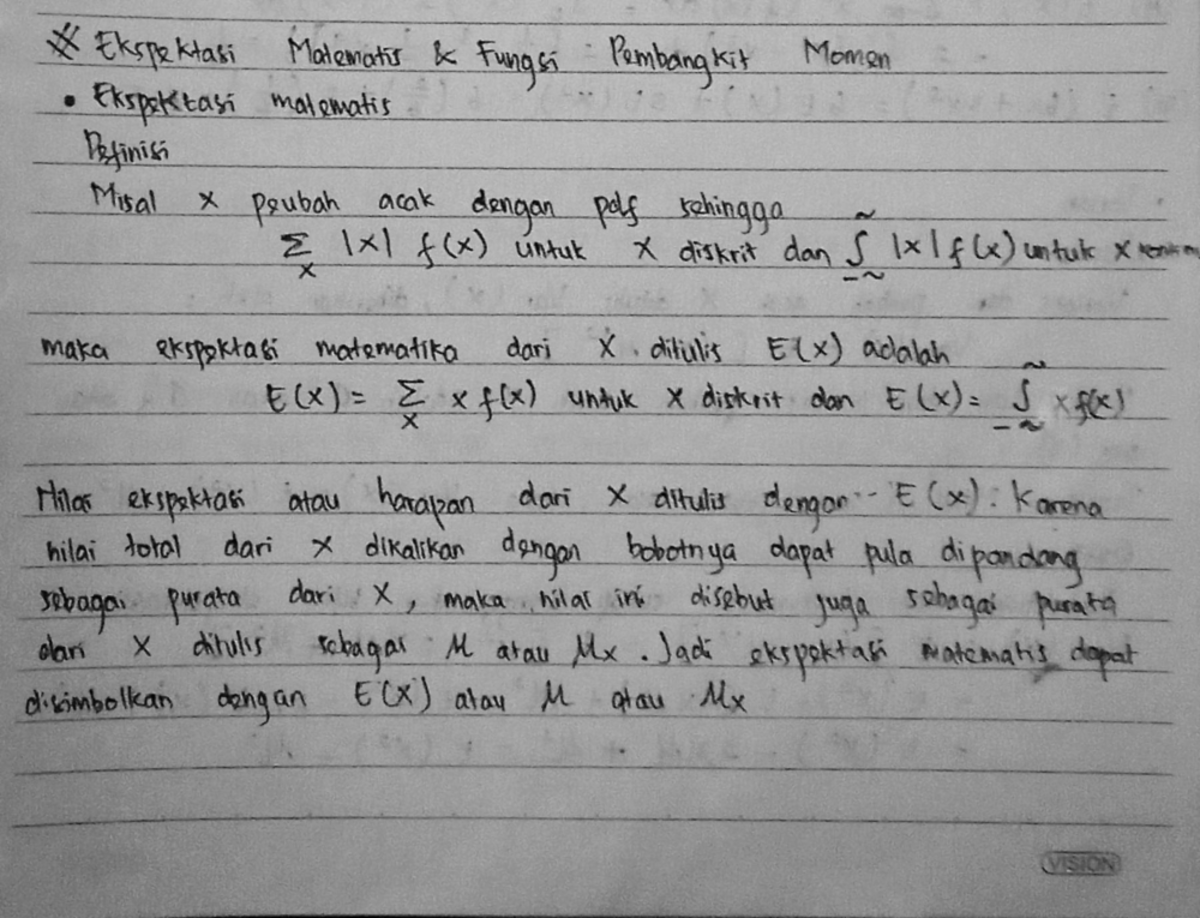 ※ Ekspektasi Matematis & Fungsi Pembangkit Momen
• Ekspektasi matematis
Definisi
Misal x peubah acak dengan pdf sehingga
∑ₓ |x| f(x) untuk x diskrit dan ∫₋~^~ |x| f(x) untuk x
maka ekspektasi matematika dari X. ditulis E(x) adalah
E(x) = ∑ₓ x f(x) untuk x diskrit dan E(x) = ∫₋~^~ x f(x)
Nilai ekspektasi atau harapan dari X ditulis dengan E(x). Karena
nilai total dari x dikalikan dengan bobotnya dapat pula dipandang
sebagai purata dari X, maka nilai ini disebut juga sebagai purata
dari X ditulis sebagai μ atau μx. Jadi ekspektasi matematis dapat
disimbolkan dengan E(X) atau μ atau μx
VISION